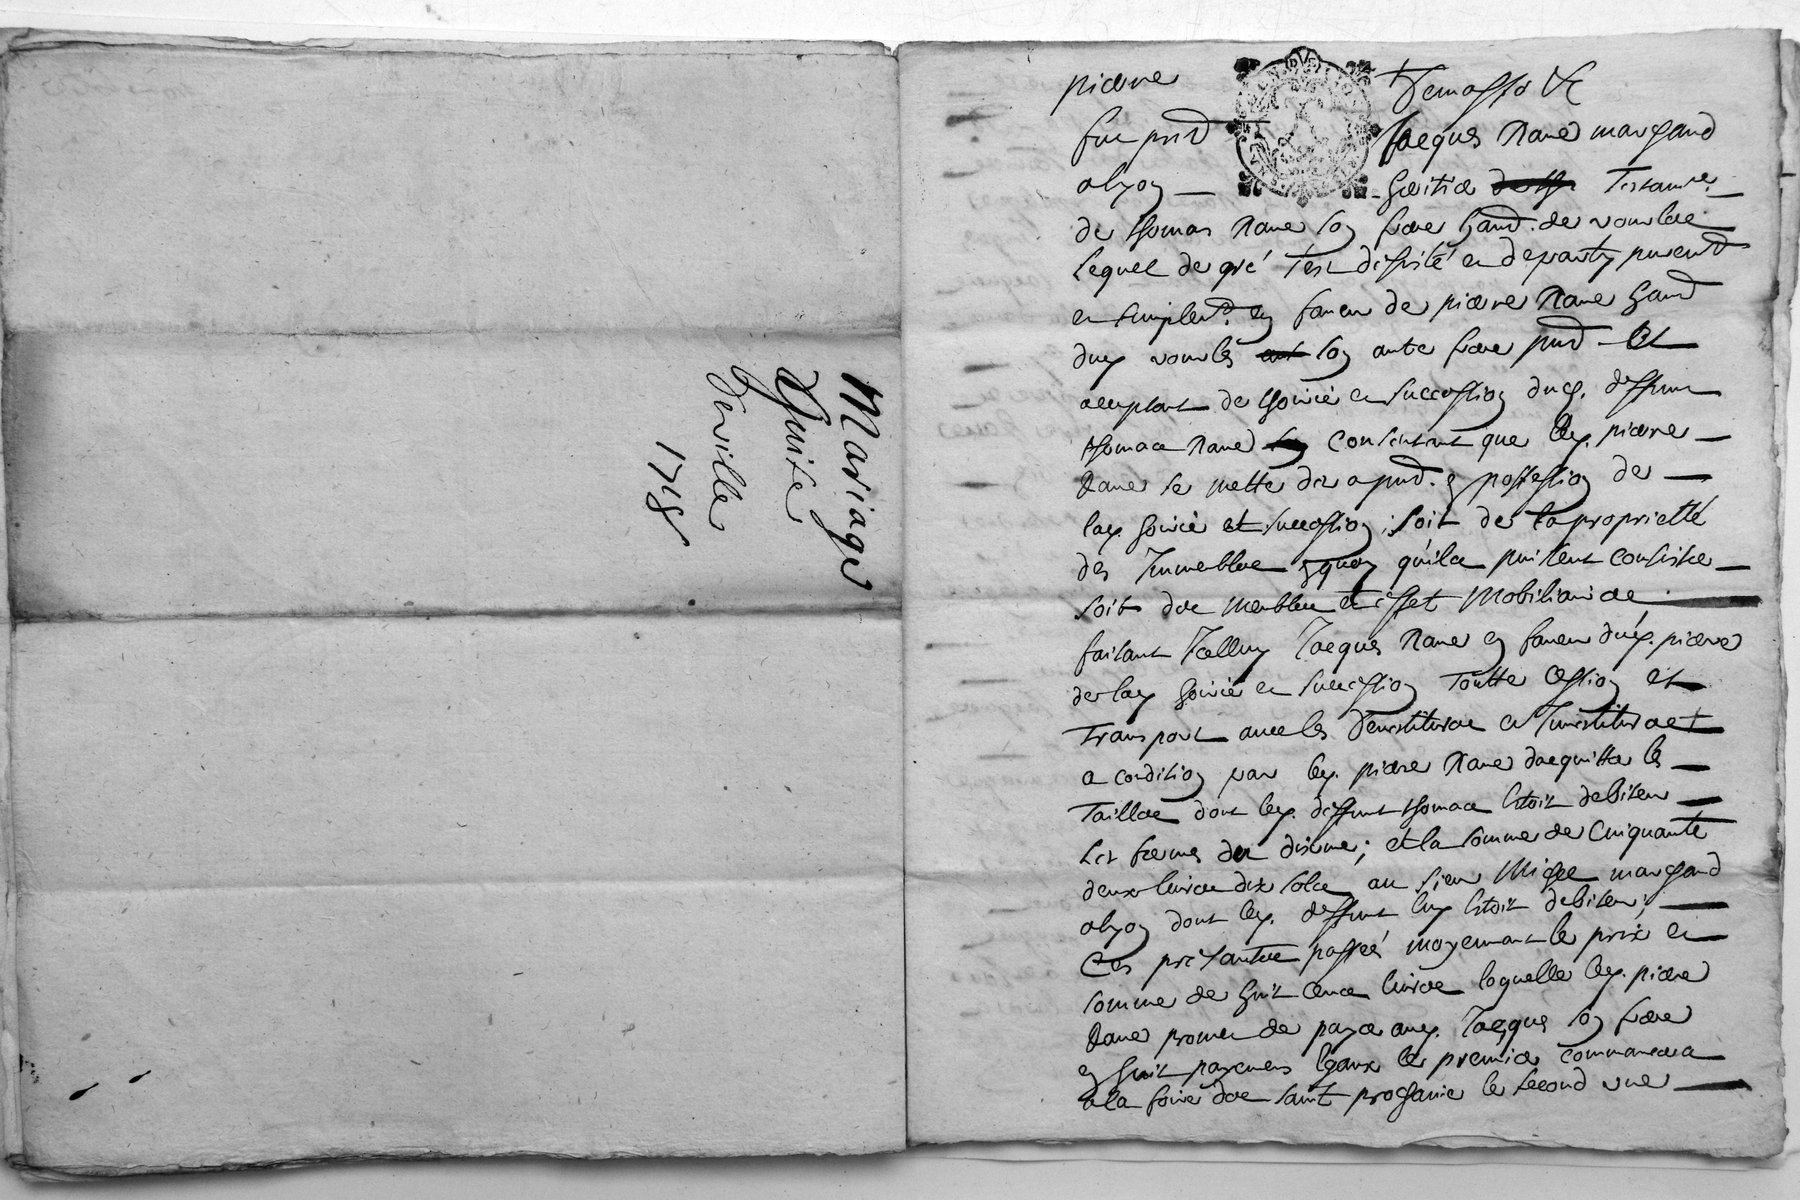 Mariage
Guise
deville
1718
pierre
fut pnt Jacques Rane marchand
a lyon heritier testamre
de thomas Rane son frere hant. de vourles
Lequel de gré s'est desisté et departy purement
et simplemt. en faveur de pierre Rane hant
dud. vourles son autre frere pnt Et
acceptant de lhoirie et succession dud. deffunt
thomas Rane consentant que led. pierre
Rane se mette des a pnt. en possession de
lad. hoirie et succession, soit de la proprietté
des Immeubles enquoy quils puissent consister
soit des meubles et effet Mobiliaires
faisant Icelluy Jacques Rane en faveur dud. pierre
de lad. hoirie et succession toutte cession et
transport avec les devestitures et Investitures
a condition par led. pierre Rane dacquitter les
tailles dont led. deffunt thomas Etoit debiteur
Les fermes du disme; et la somme de Cinquante
deux livres dix sols au sieur Michel marchand
a lyon dont led. deffunt luy Etoit debiteur;
Ces presantes passés moyennant le prix et
somme de huit cents livres laquelle led. pierre
Rane promet de payer aud. Jacques son frere
en huit payemens Egaux le premier commancera
a la foire des saint prochaine le second une